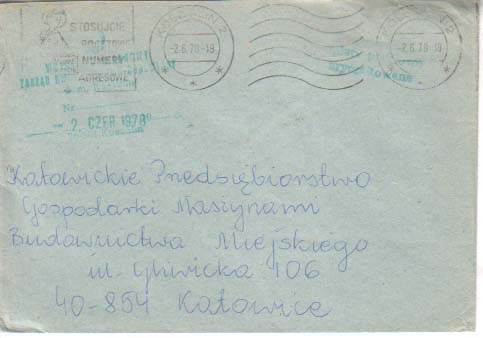 STOSUJCIE
POCZTOWE
NUMERY
ADRESOWE
KOSZALIN 2
-2.6.78-18
KOSZALIN 2
-2.6.78-18
ZARZĄD
Nr
- 2. CZER 1978
Katowickie Przedsiębiorstwo
Gospodarki Maszynami
Budownictwa Miejskiego
ul. Gliwicka 106
40-854 Katowice